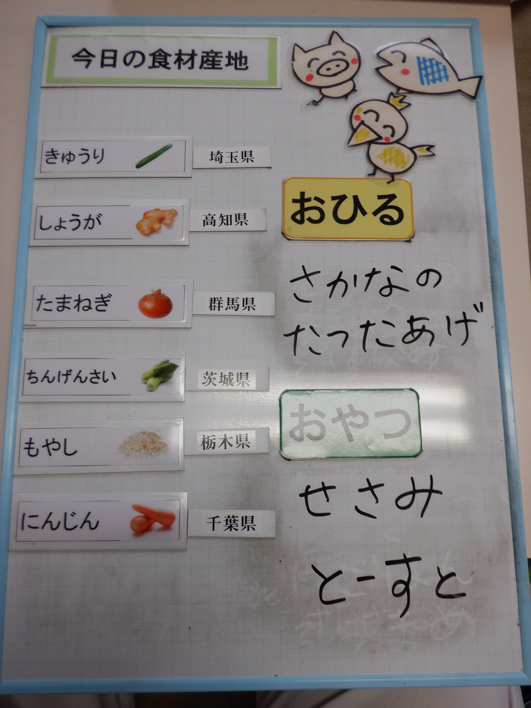 今日の食材産地
きゅうり 埼玉県
しょうが 高知県
たまねぎ 群馬県
ちんげんさい 茨城県
もやし 栃木県
にんじん 千葉県
おひる
さかなの
たったあげ
おやつ
せさみ
とーすと